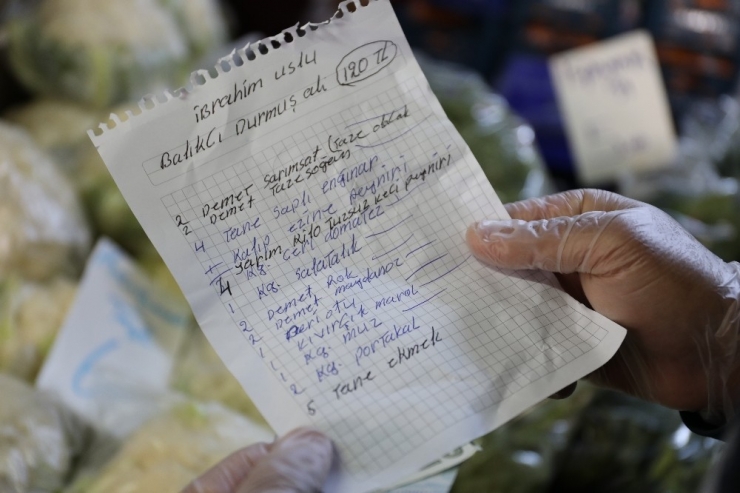 İbrahim uslu
Balıkçı Durmuş alı 120 TL
2 Demet sarımsat (Taze olacak
2 Demet Taze soğan
4 Tane saplı enginar
1 Kalıp ezine peyniri
Yarım kilo Tuzsuz keçi peyniri
4 Kg. çeri domatez
1 Kg. Salatalık
2 Demet Rok
2 Demet maydanoz
1 Dereotu
1 Kıvırçık marol
1 Kg. muz
2 Kg. portakal
5 Tane ekmek